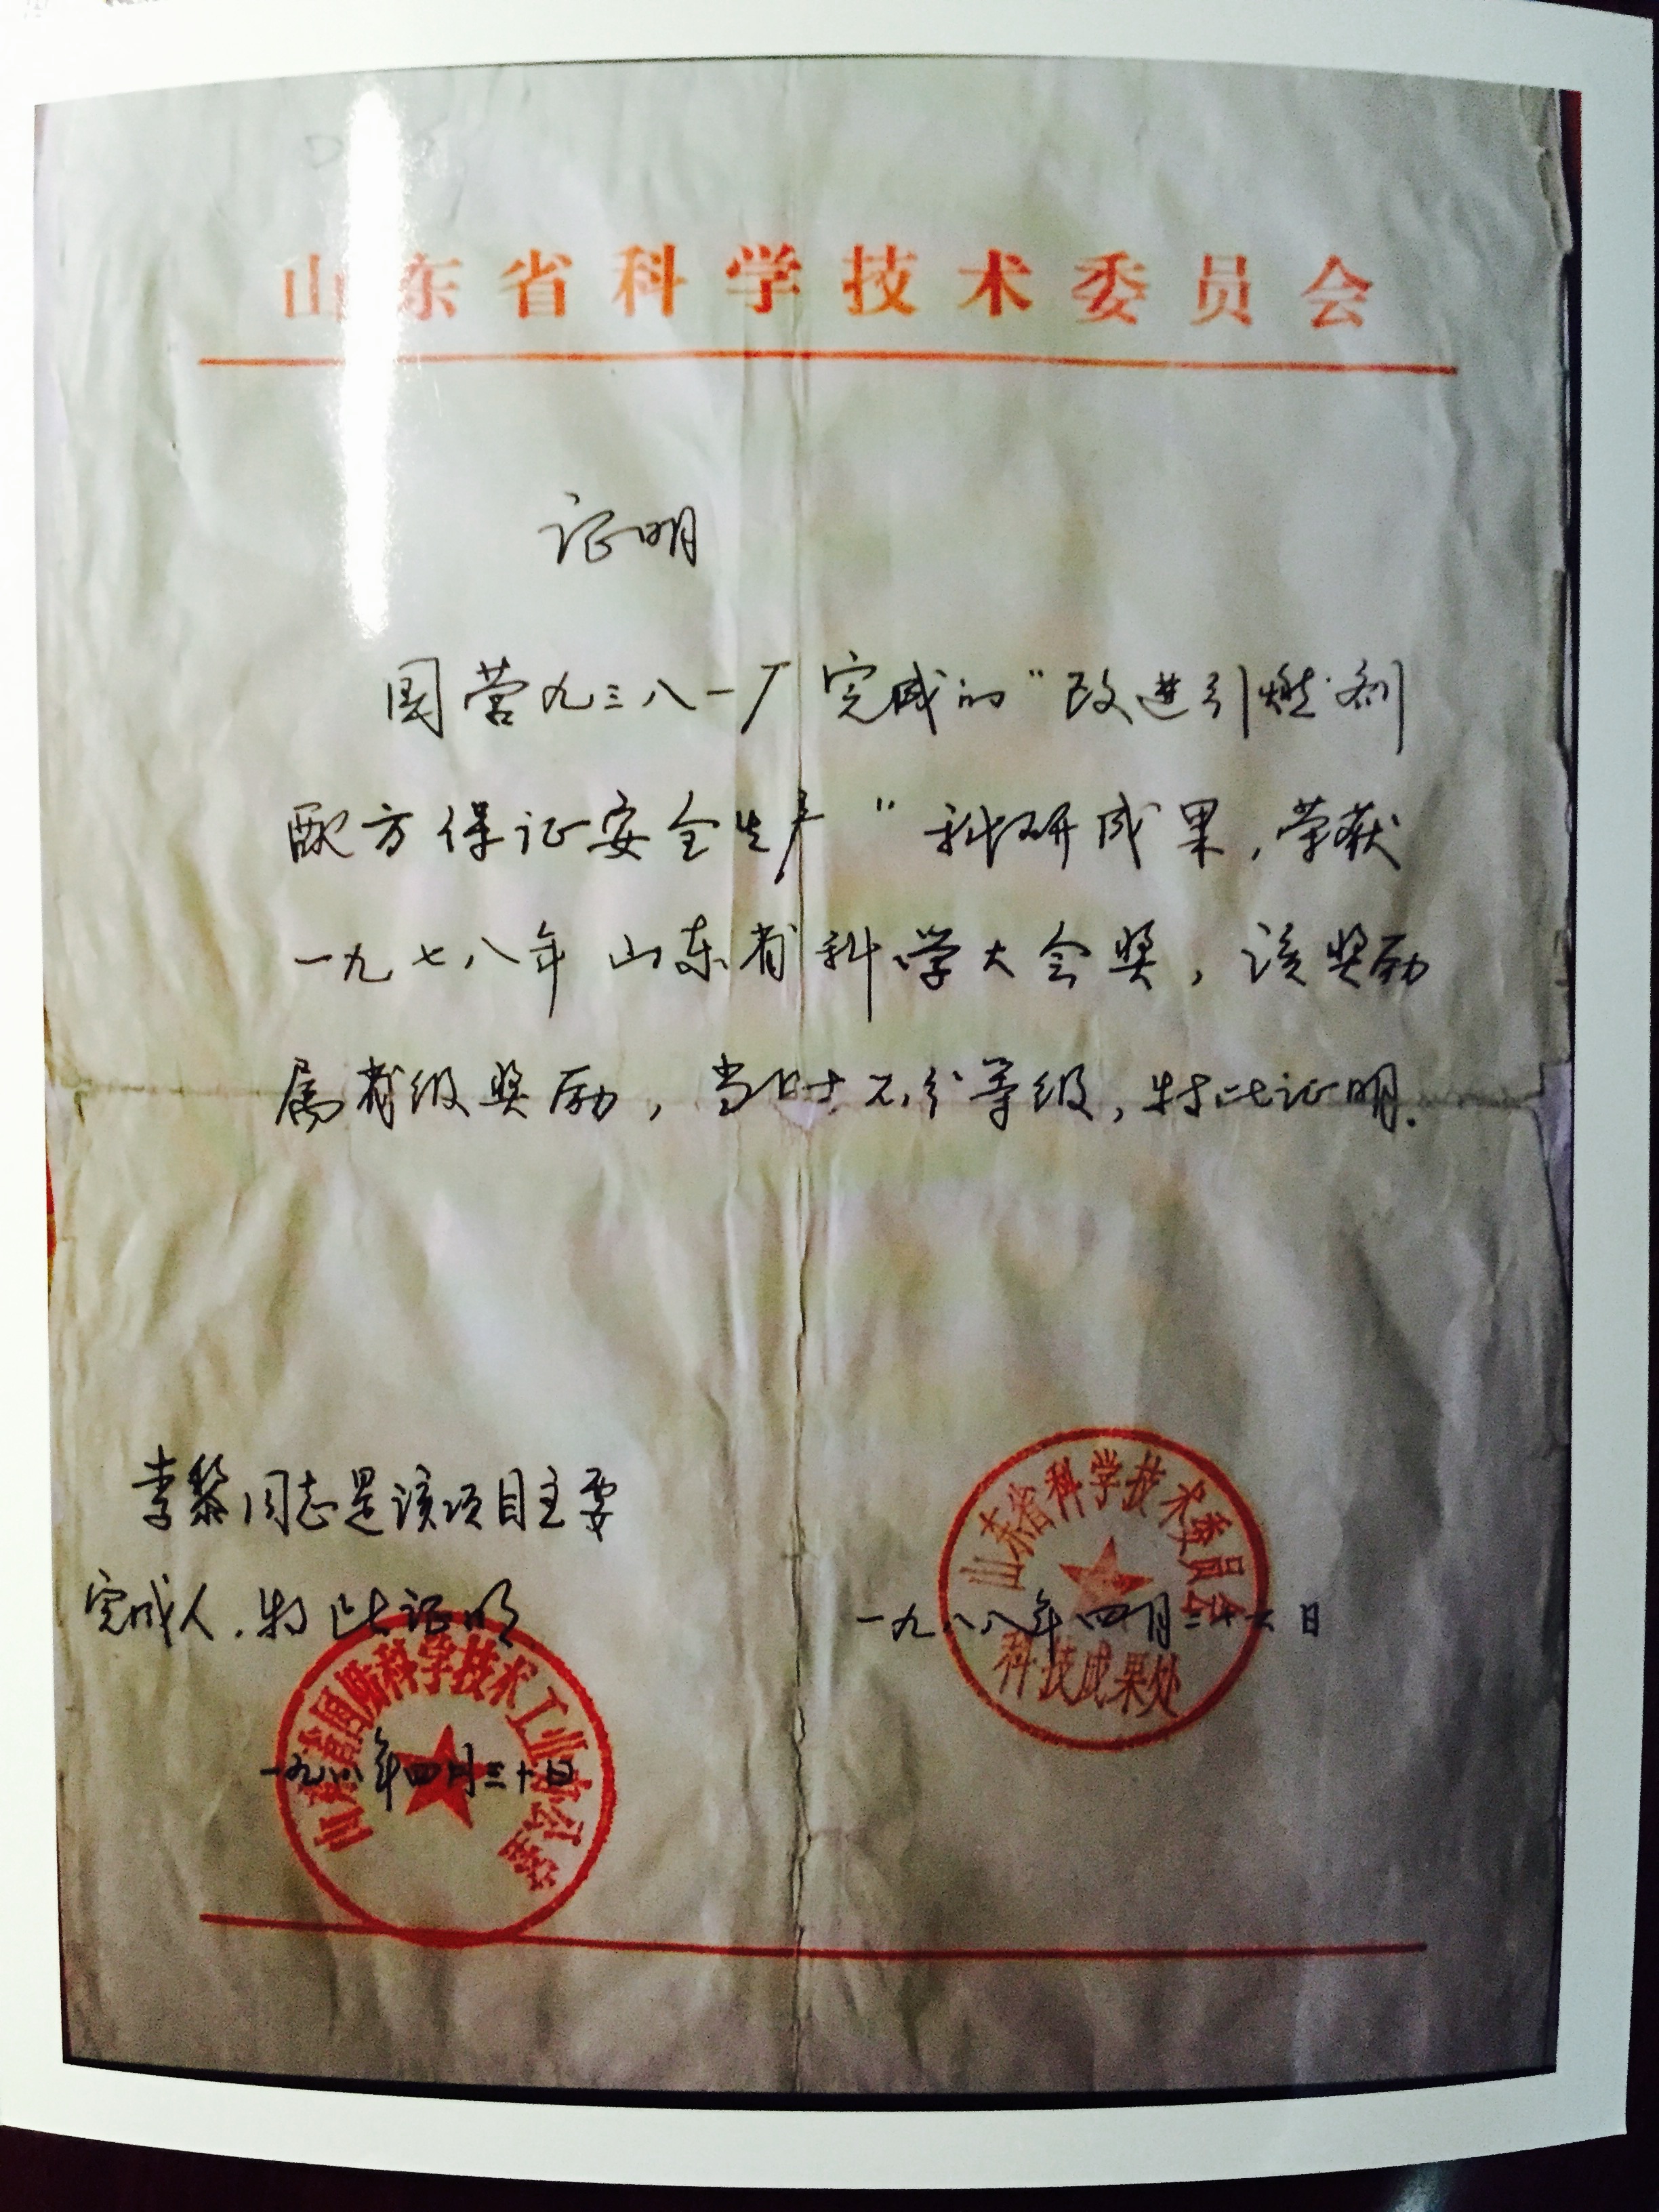 山东省科学技术委员会
证明
国营九三八一厂完成的"改进引燃剂
配方保证安全生产"科研成果,荣获
一九七八年山东省科学大会奖,该奖励
属省级奖励,当时不分等级,特此证明.
李黎同志是该项目主要
完成人.特此证明
山东省国防科学技术工业办公室
一九八八年四月三十日
山东省科学技术委员会
一九八八年四月二十六日
科技成果处